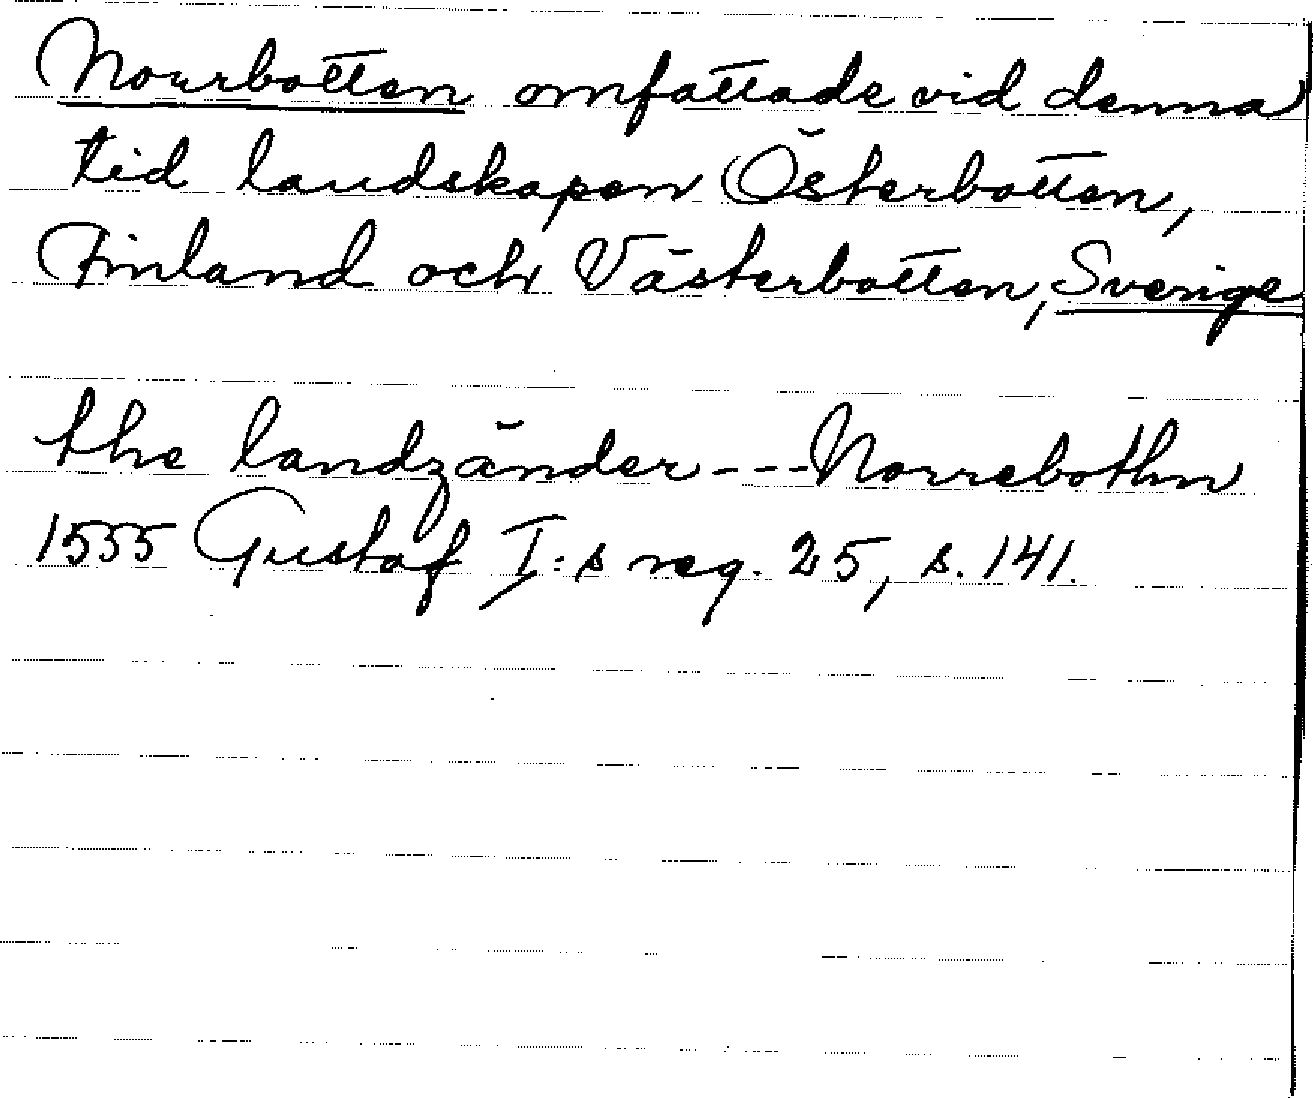 Norrbotten omfattade vid denna
tid landskapen Österbotten,
Finland och Västerbotten, Sverige
the landzänder---Norrebothn
1555 Gustaf I:s reg. 25, s. 141.